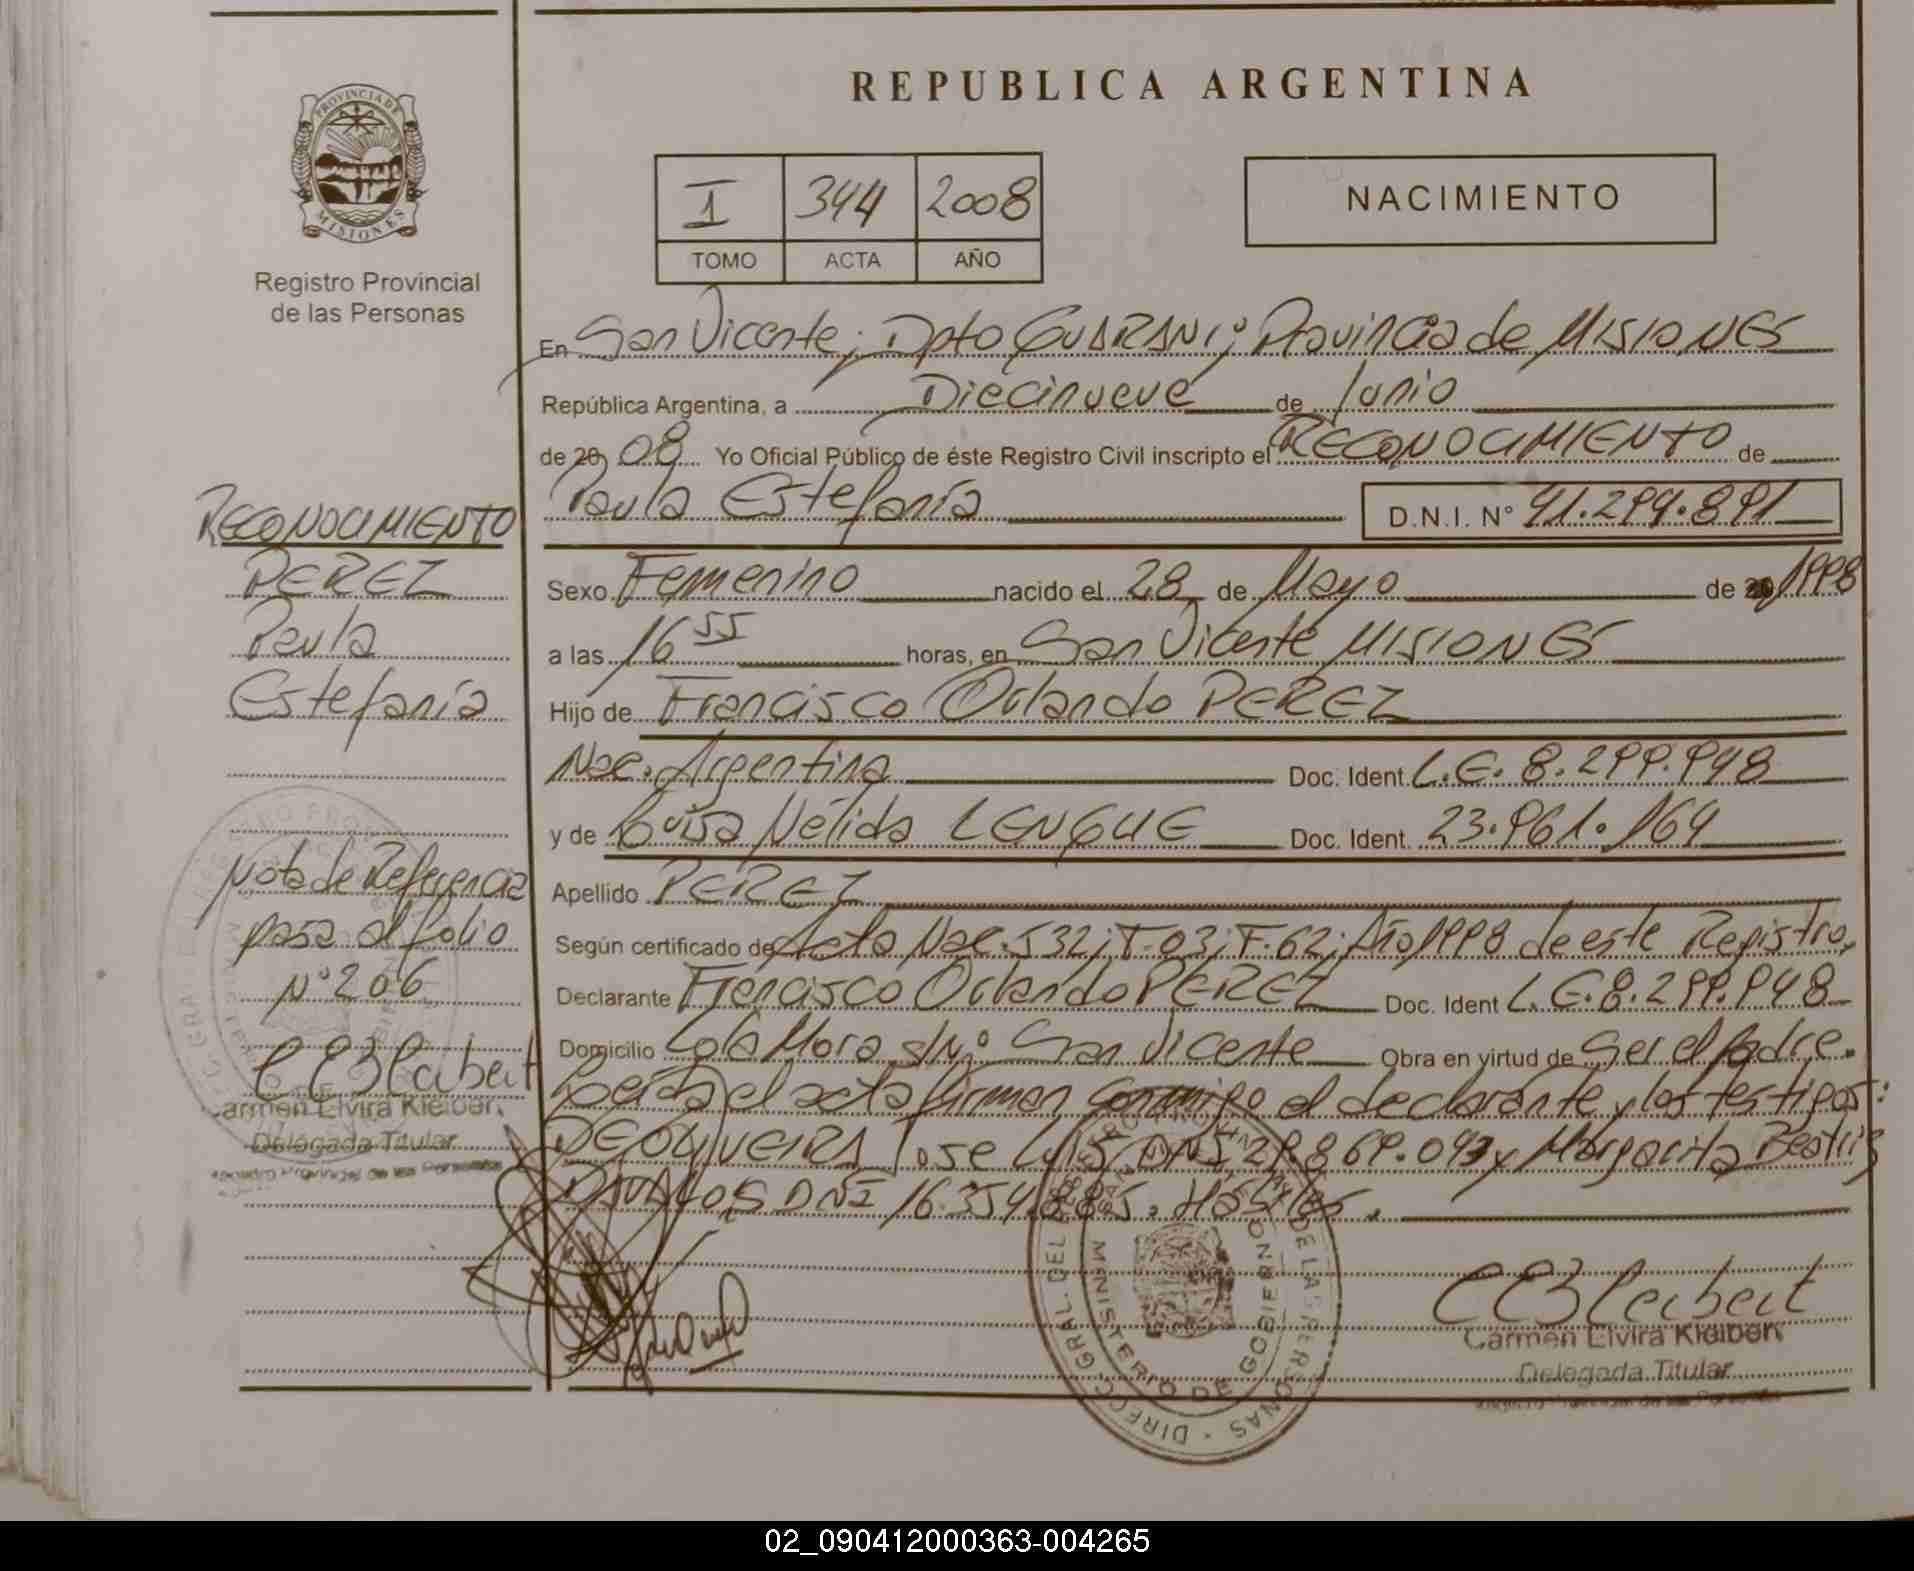 PROVINCIA DE
MISIONES
Registro Provincial
de las Personas
REPUBLICA ARGENTINA
I 344 2008
TOMO ACTA AÑO
NACIMIENTO
En San Vicente; Dpto GUARANI; Provincia de MISIONES
República Argentina, a Diecinueve de Junio
de 2008 Yo Oficial Público de éste Registro Civil inscripto el RECONOCIMIENTO de
Paula Estefanía D.N.I. N° 41.299.891
Sexo Femenino nacido el 28 de Mayo de 1998
a las 16 55 horas, en San Vicente MISIONES
Hijo de Francisco Orlando PEREZ
Nac. Argentina Doc. Ident. L.E. 8.299.948
y de Luisa Nélida LENGUE Doc. Ident. 23.961.164
Apellido PEREZ
Según certificado de Acta Nac. 532; T. 03; F. 62; Año 1998 de este Registro.
Declarante Francisco Orlando PEREZ Doc. Ident L.E. 8.299.948
Domicilio Lola Mora s/N° San Vicente Obra en virtud de Ser el padre.
Leída el acta firman conmigo el declarante y los testigos:
DEOLIVEIRA Jose Luis DNI 29.869.093 y Margarita Beatriz
DAVALOS DNI 16.354.885.
RECONOCIMIENTO
PEREZ
Paula
Estefanía
Nota de Referencia
pasa al folio
N° 206
Carmen Elvira Kleibert
Delegada Titular
Registro Provincial de las Personas
DIREC. GRAL. DEL REGISTRO PROVINCIAL DE LAS PERSONAS
MINISTERIO DE GOBIERNO
Carmen Elvira Kleibert
Delegada Titular
Registro Provincial de las Personas
02_090412000363-004265